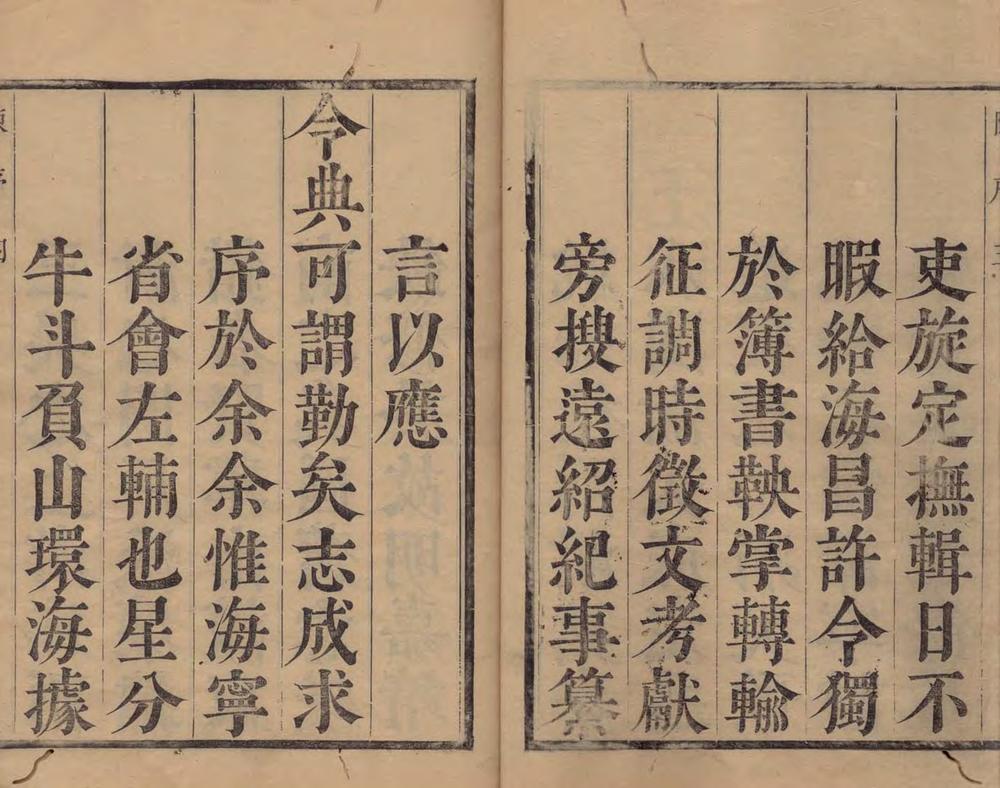 吏旋定撫輯日不
暇給海昌許令獨
於簿書鞅掌轉輸
征調時徵文考獻
旁搜遠紹紀事纂
言以應
令典可謂勤矣志成求
序於余余惟海寧
省會左輔也星分
牛斗負山環海據